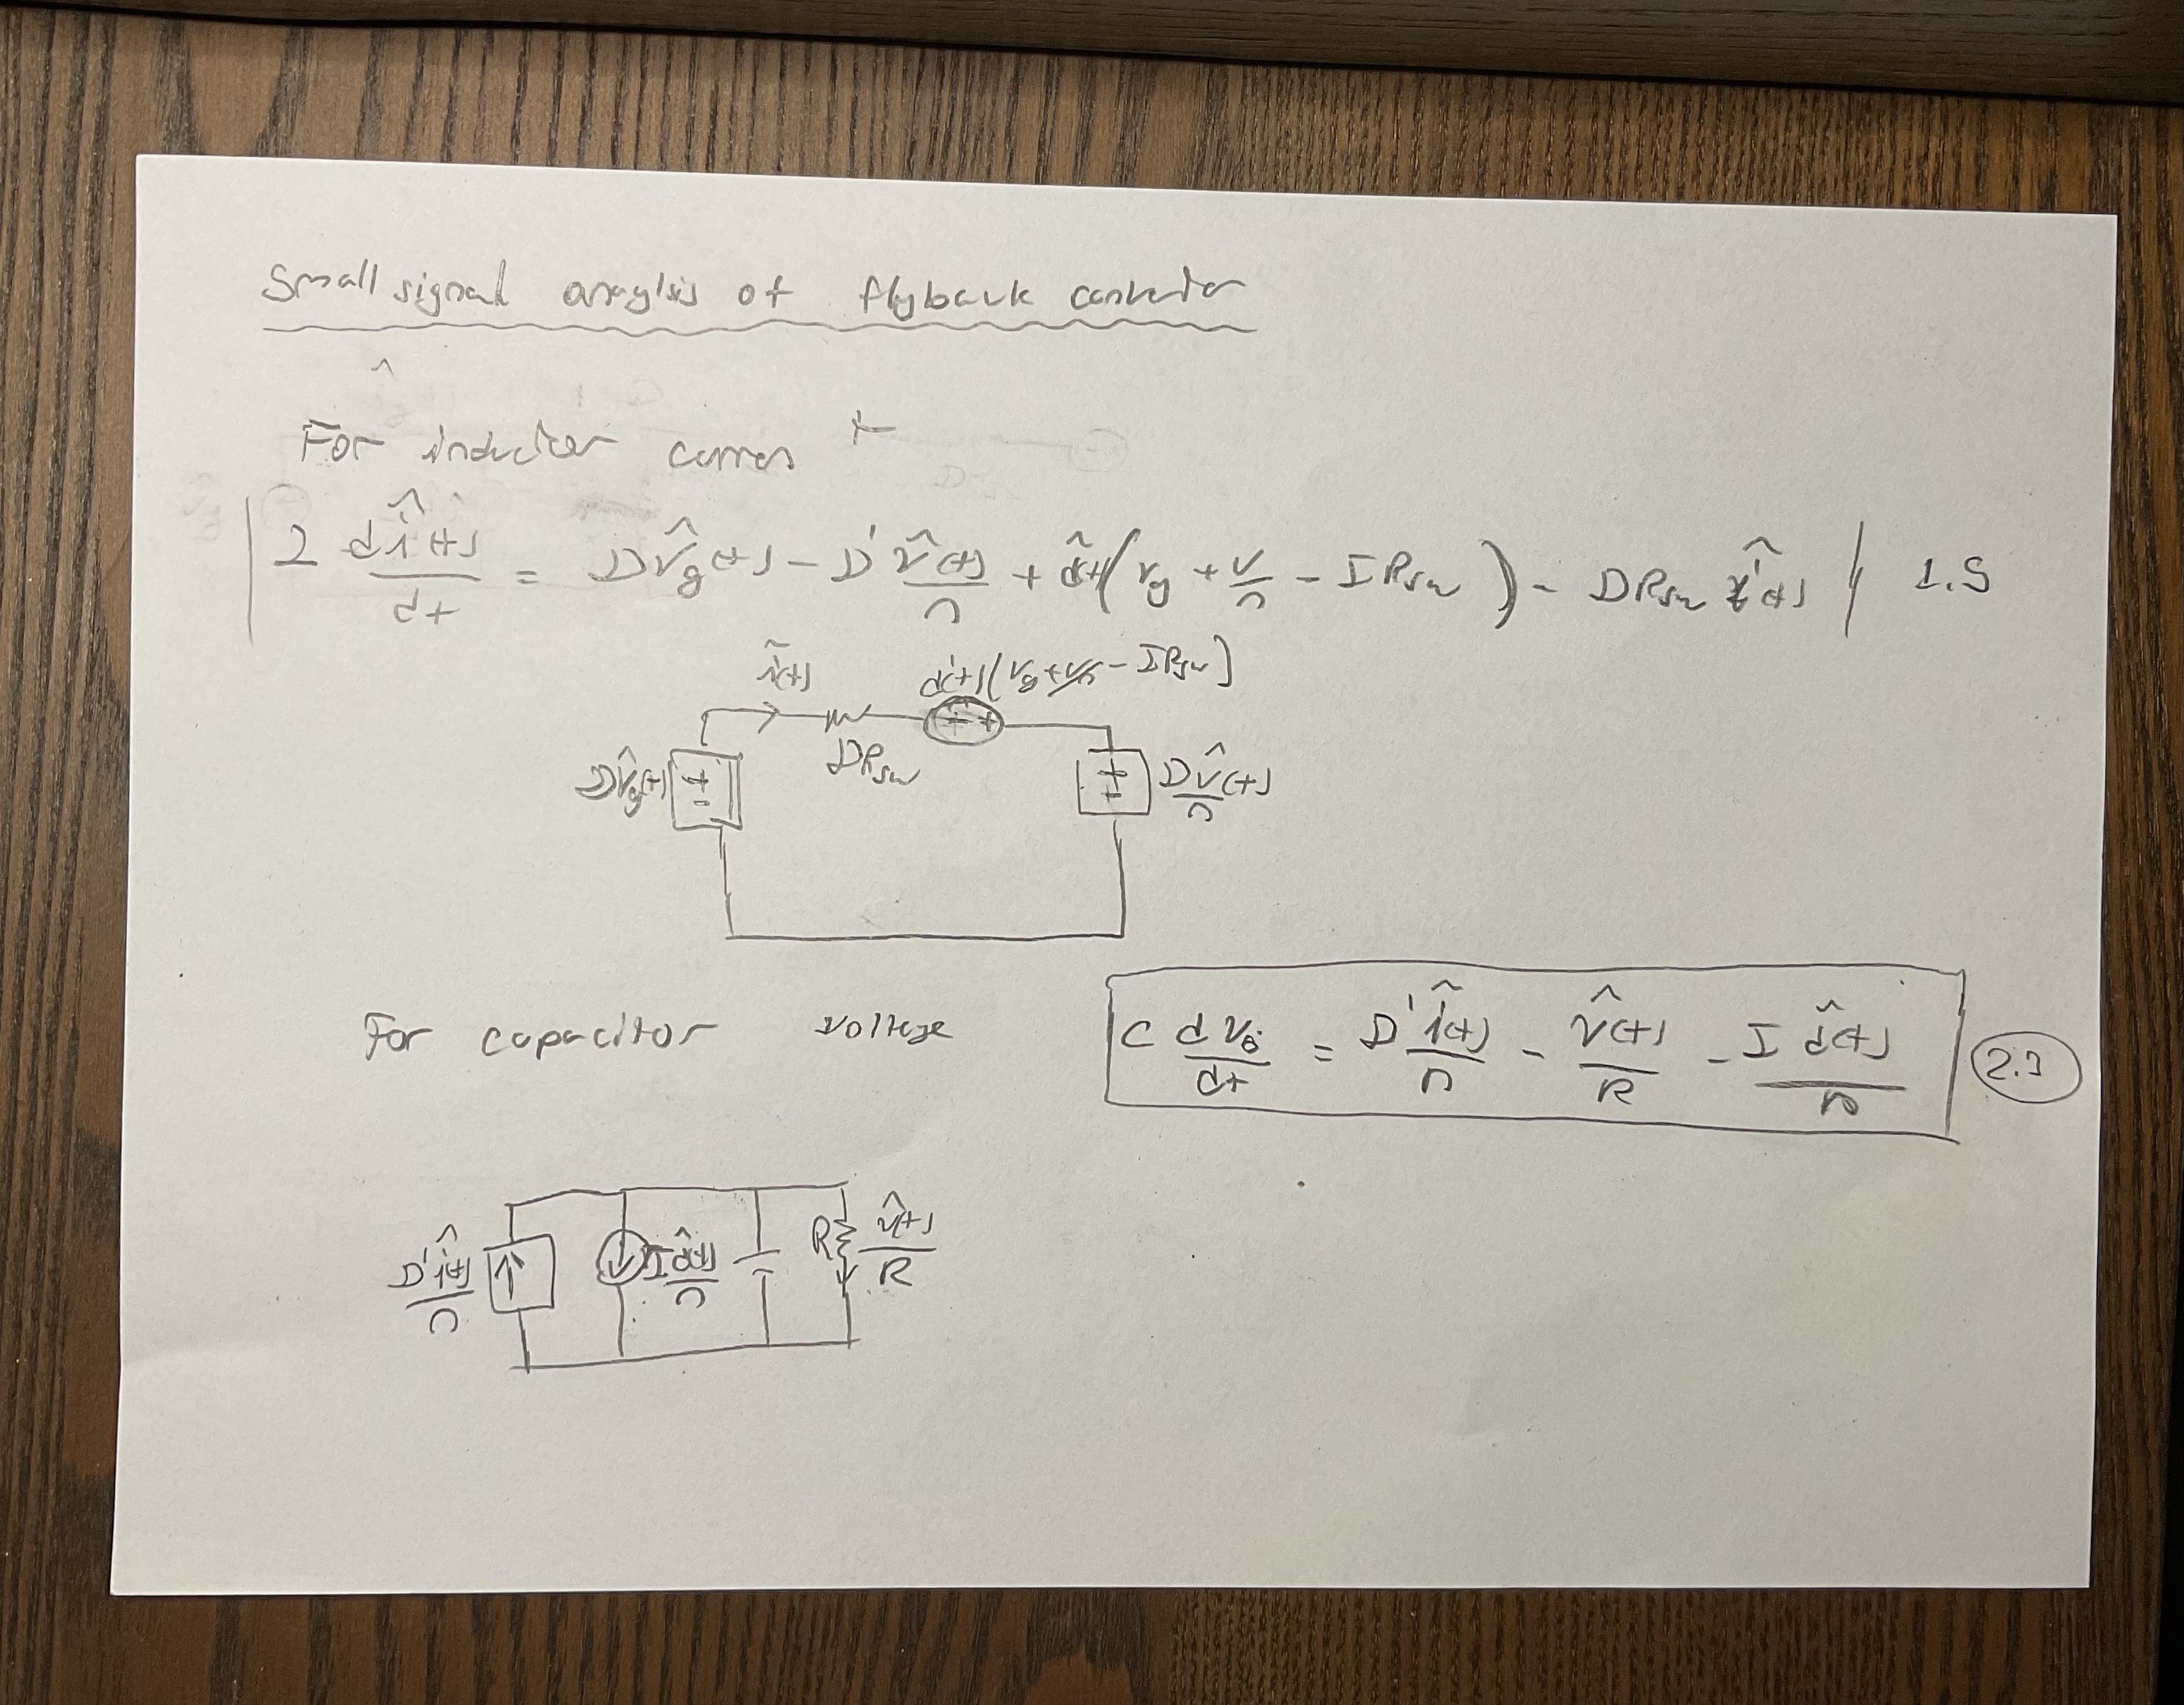 Small signal anaylsis of flyback converter
For inductor current
L dî(t)/dt = D v̂g(t) - D' v̂(t)/n + d̂(t)(Vg + V/n - I Rsw) - D Rsw î(t) 1.5
î(t) d̂(t)(Vg + V/n - I Rsw)
D v̂g(t) + - D Rsw - + + - D v̂(t)/n
For capacitor voltage C dv̂/dt = D' î(t)/n - v̂(t)/R - I d̂(t)/n 2.3
D' î(t)/n I d̂(t)/n R v̂(t)/R